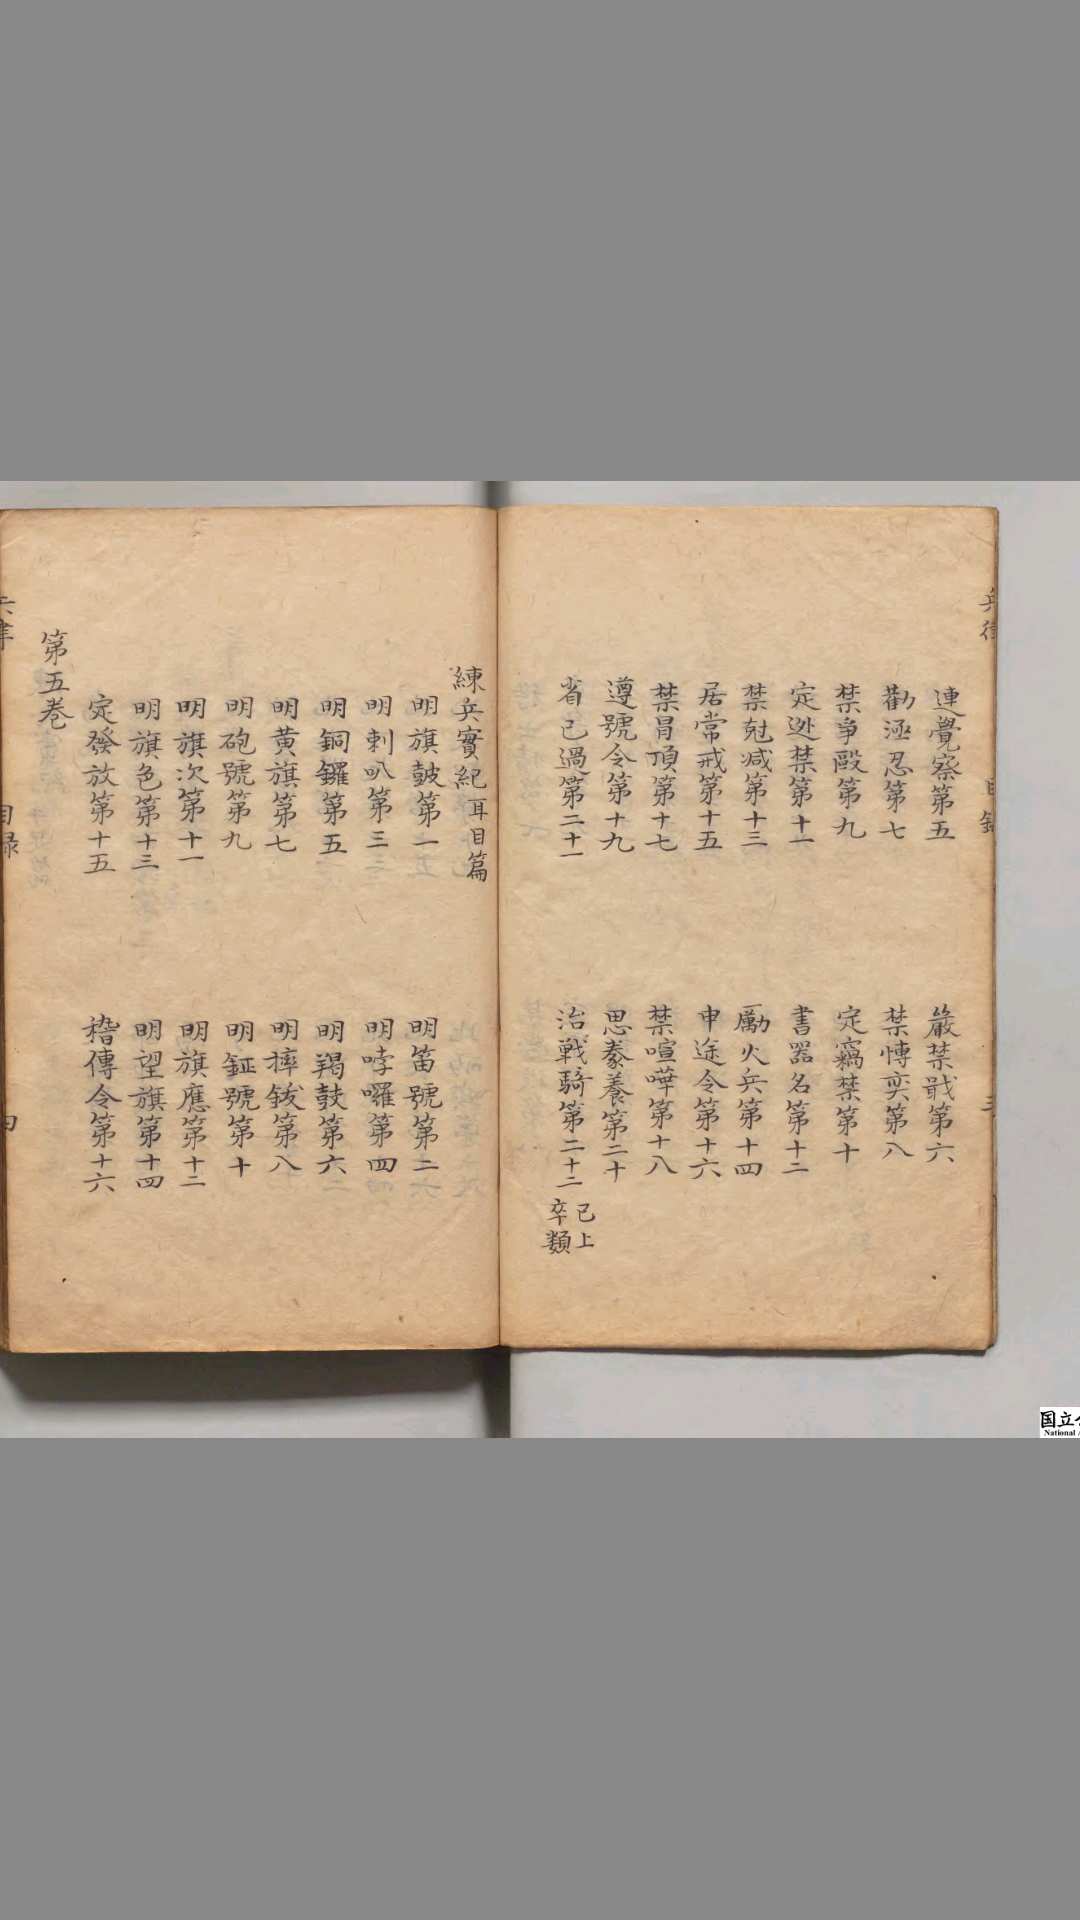 連覺察第五　嚴禁戢第六
勸涵忍第七　禁愽奕第八
禁爭毆第九　定竊禁第十
定逃禁第十一　書器名第十二
禁尅減第十三　勵火兵第十四
居常戒第十五　申途令第十六
禁冒頂第十七　禁喧嘩第十八
遵號令第十九　思豢養第二十
省己過第二十一　治戰騎第二十二　已上卒類
練兵實紀　耳目篇
明旗鼓第一　明笛號第二
明喇叭第三　明哱囉第四
明銅鑼第五　明羯鼓第六
明黄旗第七　明摔鈸第八
明砲號第九　明鉦號第十
明旗次第十一　明旗應第十二
明旗色第十三　明望旗第十四
定發放第十五　稽傳令第十六
第五巻
目録
国立
National